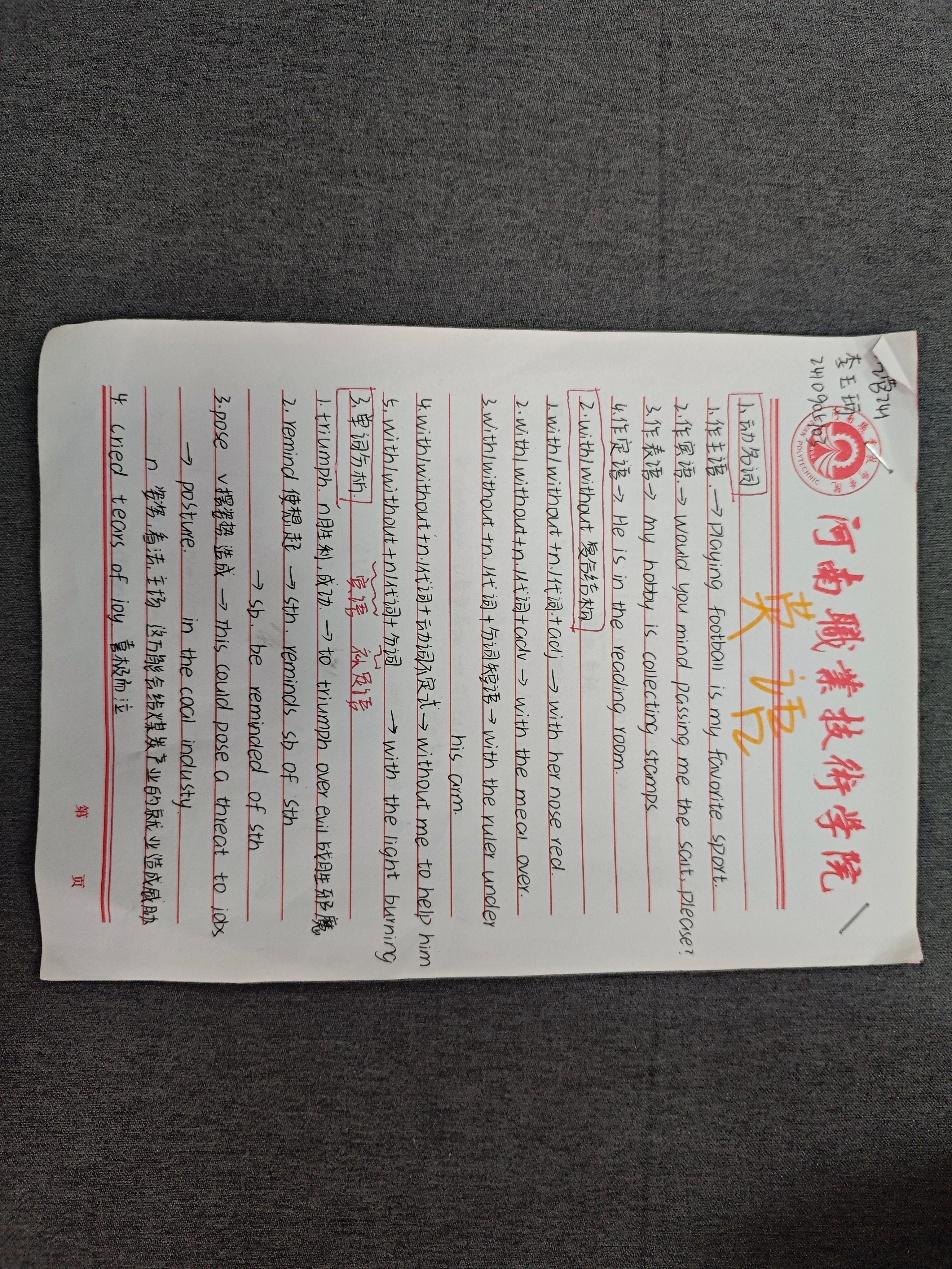 李玉珂
河南職業技術学院
英语
1.动名词
1.作主语 → playing football is my favorite sport.
2.作宾语 → would you mind passing me the salt. please?
3.作表语 → my hobby is collecting stamps
4.作定语 → He is in the reading room.
2.with\without 复合结构
1.with\without +n\代词+adj → with her nose red
2.with\without+n.\代词+adv → with the meal over.
3.with\without+n.\代词+介词短语 → with the ruler under
his arm.
4.with\without+n.\代词+动词不定式 → without me to help him
5.with\without+n.\代词+分词 → with the light burning
宾语 补足语
3.单词分析
1.triumph. n胜利.成功 → to triumph over evil 战胜邪魔
2.remind 使想起 → sth reminds sb of sth
→ sb be reminded of sth
3.pose v摆姿势.造成 → this could pose a threat to jobs
→ posture. in the coal industry
n 姿势.看法.立场 这可能会给煤炭产业的就业造成威胁
4. cried tears of joy 喜极而泣
第 页